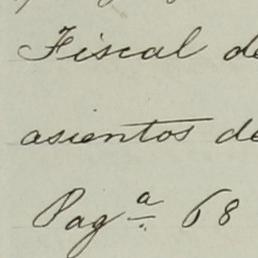 Fiscal de
asientos de
Pagª 68